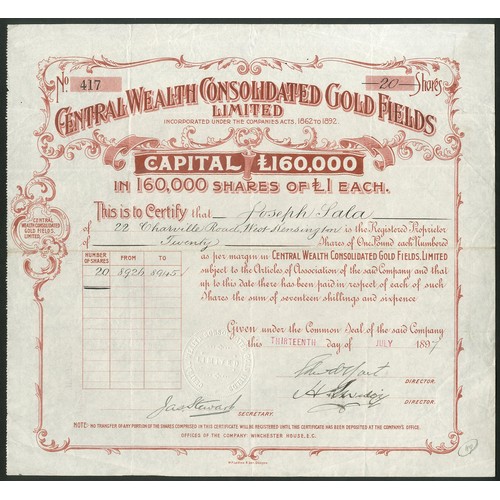 No 417
20 Shares
CENTRAL WEALTH CONSOLIDATED GOLD FIELDS
LIMITED
INCORPORATED UNDER THE COMPANIES ACTS, 1862 TO 1892.
CAPITAL £160,000
IN 160,000 SHARES OF £1 EACH.
This is to Certify that Joseph Sala
of 22 Charville Road, West Kensington is the Registered Proprietor
of Twenty Shares of One Pound each Numbered
as per margin in CENTRAL WEALTH CONSOLIDATED GOLD FIELDS, LIMITED
subject to the Articles of Association of the said Company and that
up to this date there has been paid in respect of each of such
Shares the sum of seventeen shillings and sixpence
CENTRAL
WEALTH CONSOLIDATED
GOLD FIELDS,
LIMITED.
NUMBER OF SHARES FROM TO
20 8926 8945
Given under the Common Seal of the said Company
this THIRTEENTH day of JULY 1897
DIRECTOR.
DIRECTOR.
Jas Stewart
SECRETARY.
NOTE: NO TRANSFER OF ANY PORTION OF THE SHARES COMPRISED IN THIS CERTIFICATE WILL BE REGISTERED UNTIL THIS CERTIFICATE HAS BEEN DEPOSITED AT THE COMPANY'S OFFICE.
OFFICES OF THE COMPANY: WINCHESTER HOUSE, E.C.